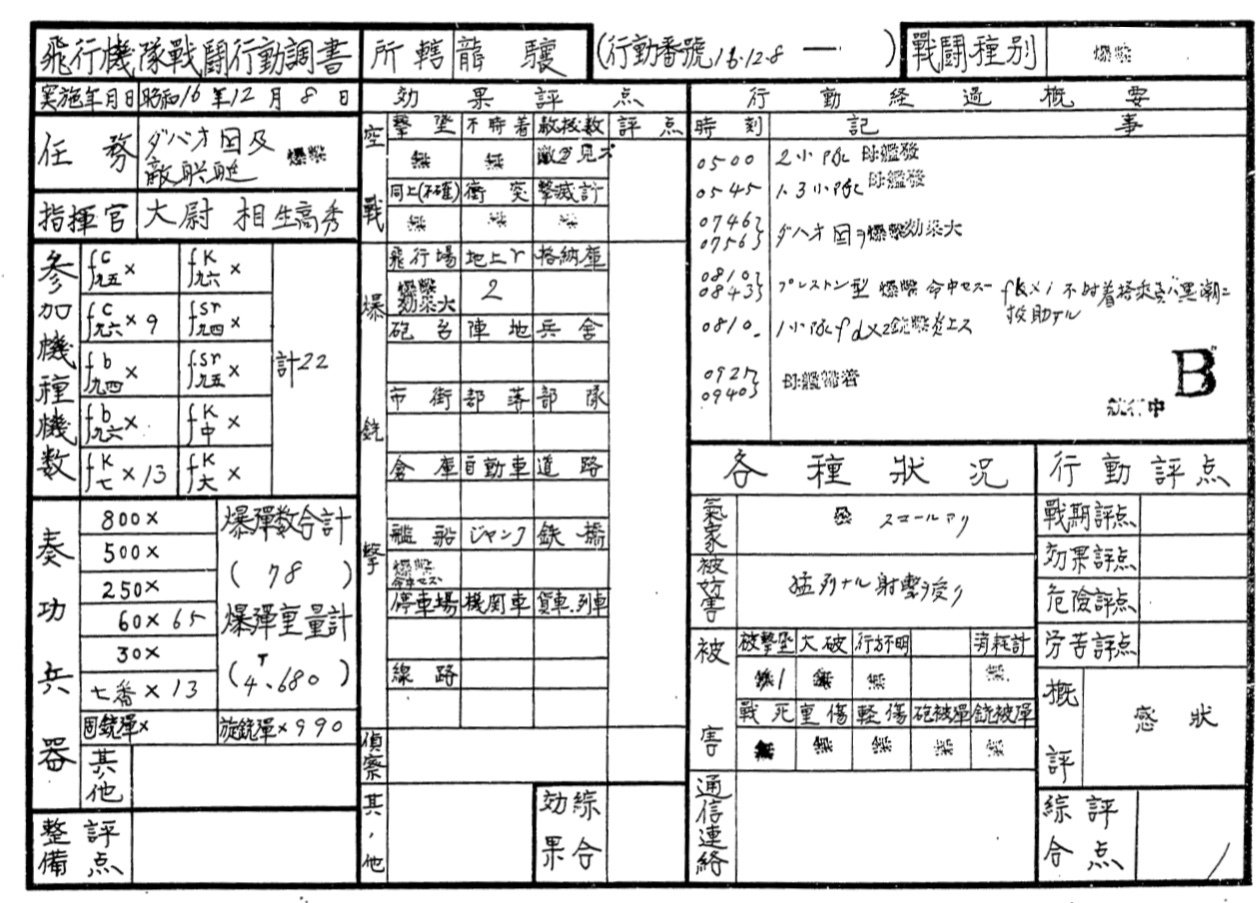 飛行機隊戰闘行動調書
所轄 龍驤
(行動番號16.12.8 一 )
戰闘種別 爆撃
実施年月日 昭和16年12月8日
任務 ダバオ 因及
爆撃
指揮官 大尉 相生高秀
参加機種機数
fc九五×
fk九六×
fc九六×9
fsr九四×
fb九四×
f.sr九五×
fb九六×
fk中×
fk七×13
fk大×
計22
奏功兵器
800×
500×
250×
60×65
30×
七番×13
固銃彈×
旋銃彈×990
爆彈数合計
( 78 )
爆彈重量計
(4T.680)
其他
整備 評点
効果評点
空戰
撃墜 不時着 敵機数 評点
無 無 敵ヲ見ズ
同上(不確) 衝突 撃滅計
無 無 無
爆銃撃
飛行場 地上r 格納庫
爆撃効果大 2
砲台 陣地 兵舎
市街 部落 部隊
倉庫 自動車 道路
艦船 ジャンク 鉄橋
爆撃
命中セズ
停車場 機関車 貨車.列車
線路
偵察
其ノ他
綜合効果
行動経過概要
時刻 記事
0500 2小隊 母艦發
0545 1.3小隊 母艦發
0746
0756 ダバオ 因ヲ爆撃効果大
0810
0843 プレストン型 爆撃 命中セズ fk×1 不時着搭乗員ハ黒潮ニ
救助サル
0810. 1小隊fd×2銃撃炎上ス
0927
0940 母艦帰着
B
中
各種状況
氣象 スコールアリ
被妨害 猛烈ナル射撃ヲ受ク
被害
被撃墜 大破 行方不明 消耗計
1 無 無 無
戰死 重傷 軽傷 砲被彈 銃被彈
無 無 無 無 無
通信連絡
行動評点
戰期評点
効果評点
危險評点
労苦評点
概評 感状
綜合評点